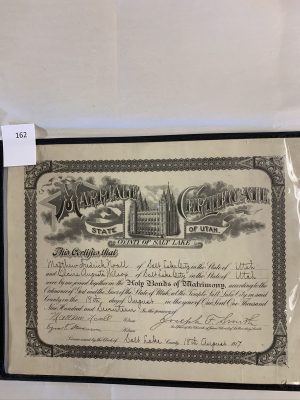 162
MARRIAGE CERTIFICATE
STATE OF UTAH.
COUNTY OF SALT LAKE
This Certifies, that
Matthew Noall of Salt Lake City in the State of Utah
and of Salt Lake City in the State of Utah
were by me joined together in the Holy Bonds of Matrimony, according to the
Ordinance of God and the Laws of the State of Utah, at the Temple, Salt Lake City, in said
County, on the 18th day of August in the year of Our Lord, One Thousand
Nine Hundred and Seventeen In the presence of
Matthew Noall Witness Joseph F. Smith
Witness
License issued by the Clerk of Salt Lake County, 18th August 1917